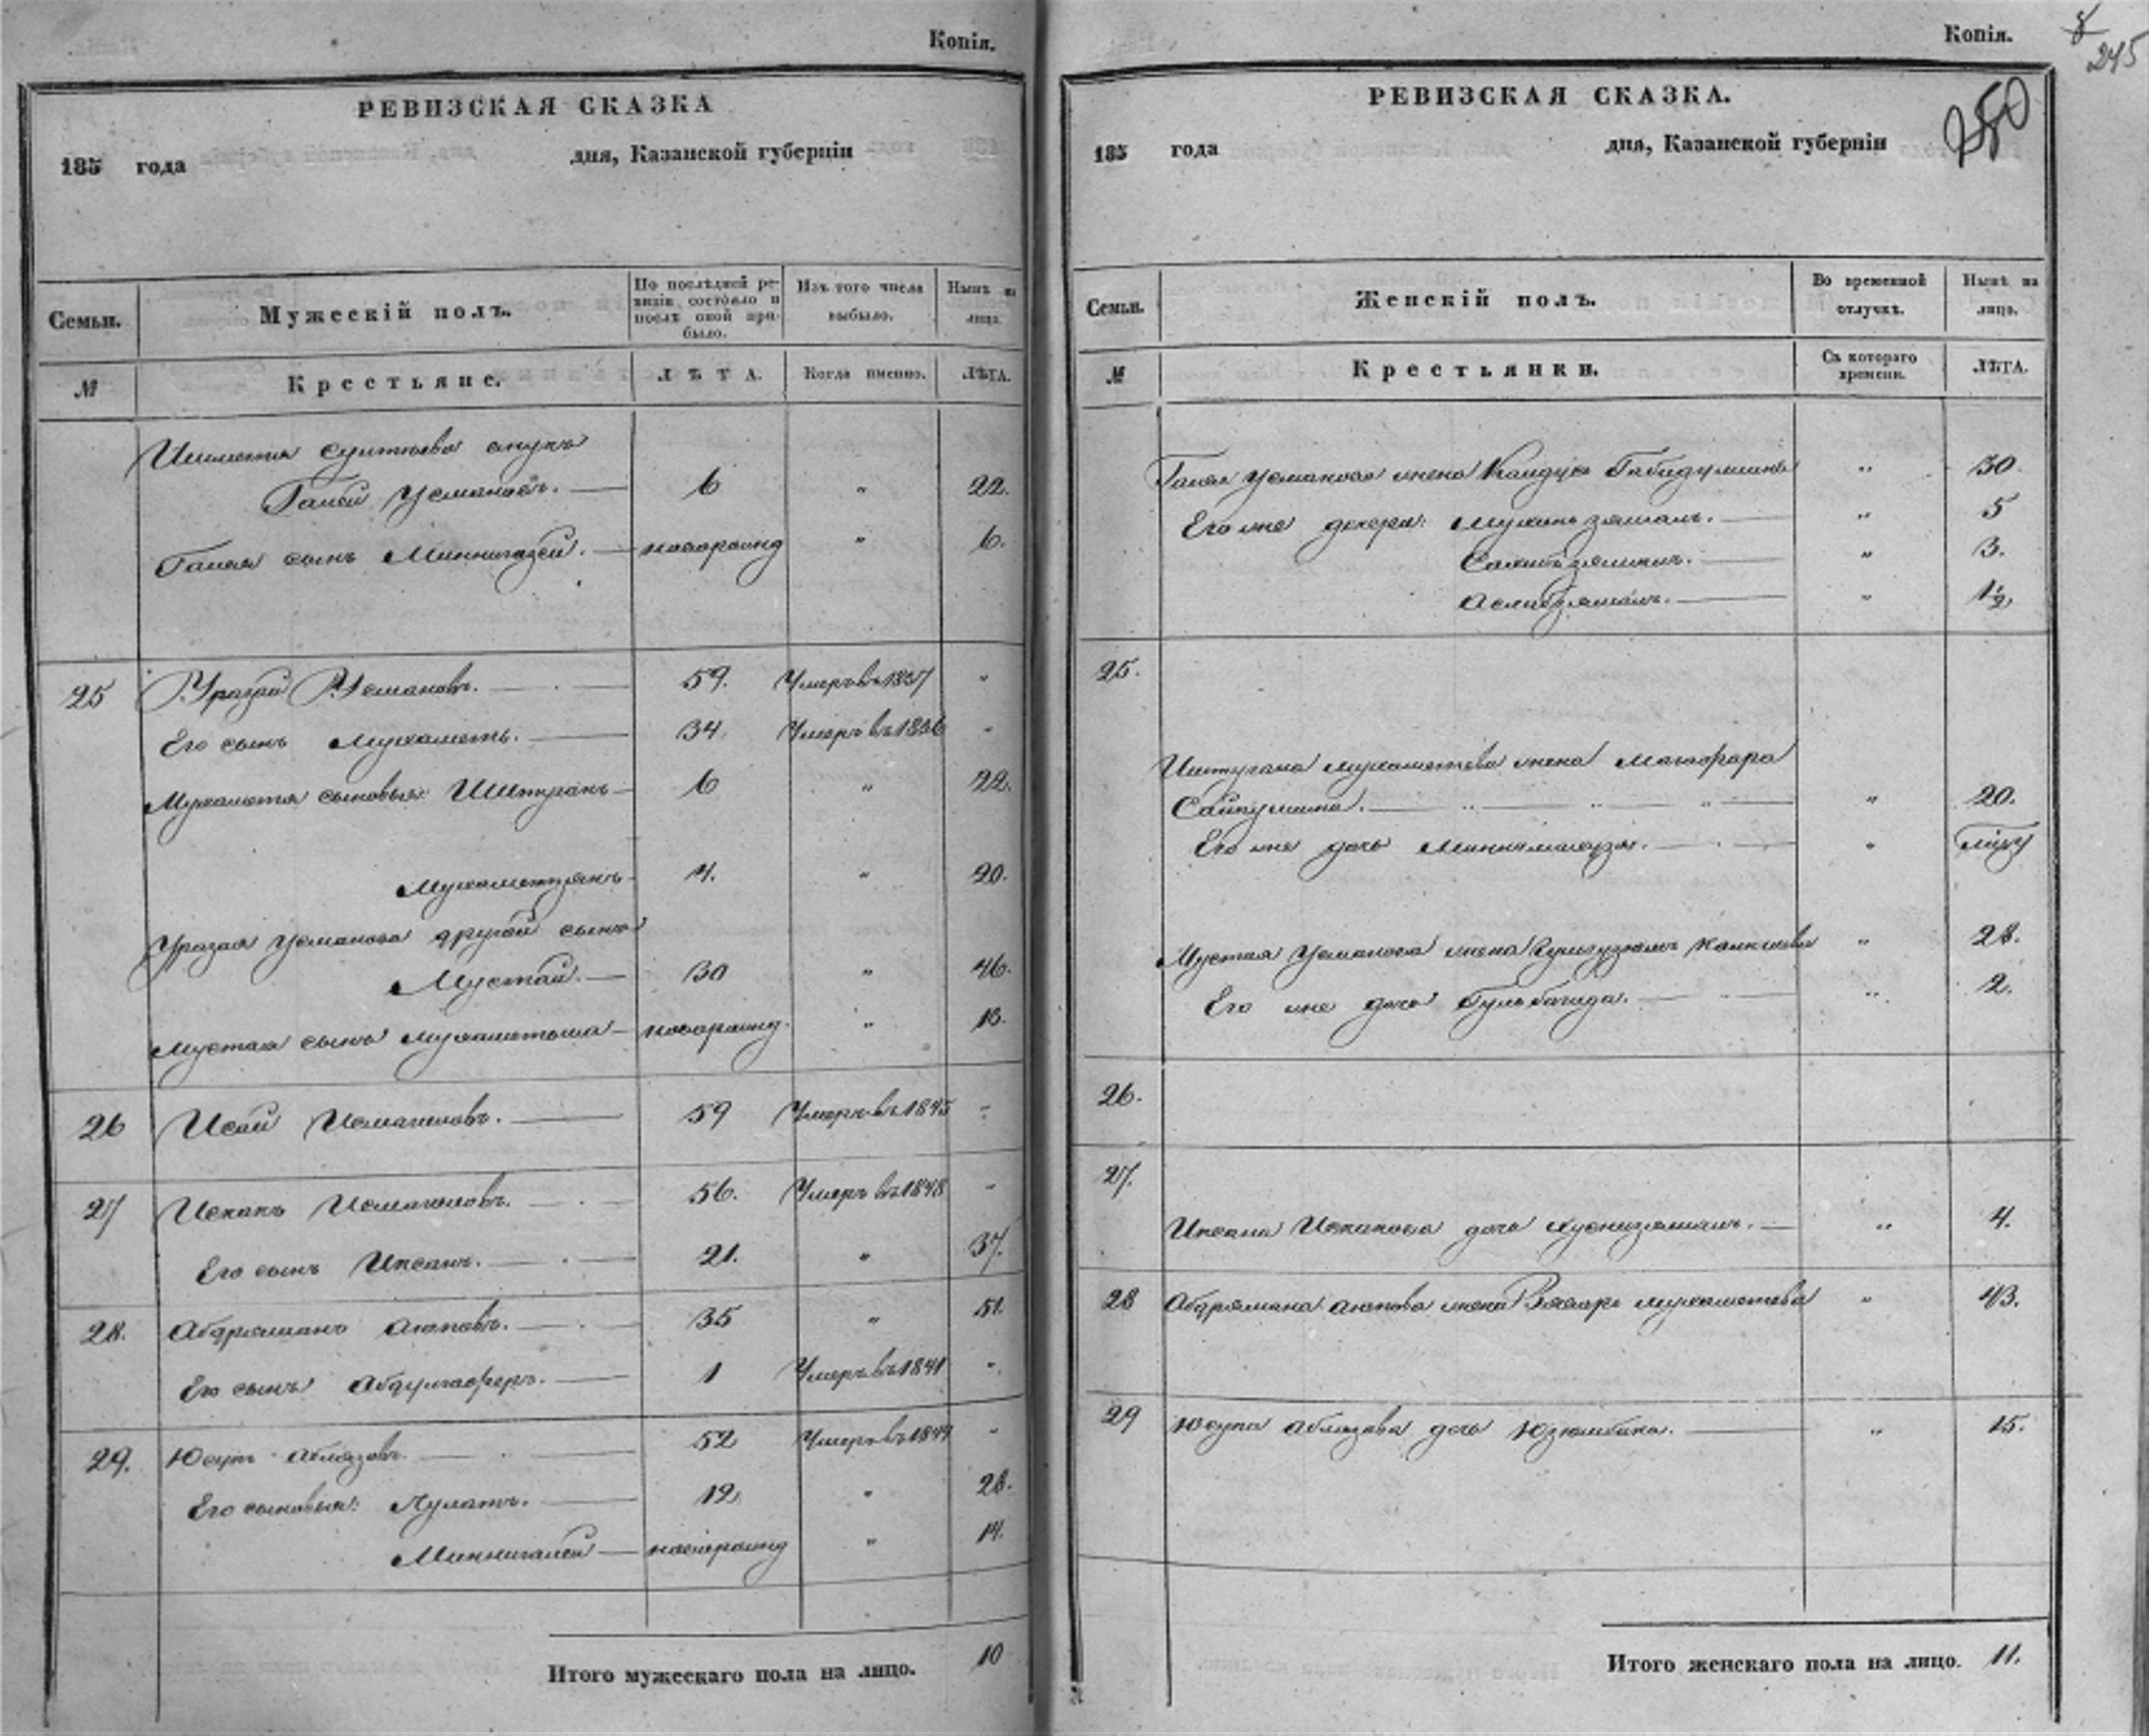 Копія.
РЕВИЗСКАЯ СКАЗКА
185 года дня, Казанской губерніи
Семьи. Мужескій полъ. По послѣдней ревизіи состояло и послѣ оной прибыло. Изъ того числа выбыло. Нынѣ на лицо.
№ Крестьяне. ЛѢТА. Когда именно. ЛѢТА.
внукъ
Галей Усмановъ. 6 " 22.
Галея сынъ Миннигазей. новорожд " 6.
25 Уразай Усмановъ. 59. Умеръ въ 1837 "
Его сынъ Мухаметь. 34. Умеръ въ 1836 "
Мухаметя сыновья: Иштуганъ 6 " 22.
Мухаметзянъ 4. " 20.
Уразая Усманова другой сынъ
Мустай. 30 " 46.
Мустая сынъ Мухаметша новорожд. " 13.
26 Исай Исмагиловъ. 59 Умеръ въ 1845 "
27 Исхакъ Исмагиловъ. 56. Умеръ въ 1848 "
Его сынъ Ихсанъ. 21. " 37.
28. Абдряшанъ Аюповъ. 35 " 51.
Его сынъ Абдулгаферъ. 1 Умеръ въ 1841 "
29. Юсупъ Аблязовъ. 52 Умеръ въ 1849 "
Его сыновья: Пулатъ. 12 " 28.
Миннигалей новорожд " 14.
Итого мужескаго пола на лицо. 10
Копія.
245
250
РЕВИЗСКАЯ СКАЗКА.
185 года дня, Казанской губерніи
Семьи. Женскій полъ. Во временной отлучкѣ. Нынѣ на лицо.
№ Крестьянки. Съ котораго времени. ЛѢТА.
Галея Усманова жена " 30
Его же дочери: " 5
Сахибзямалъ. " 3.
Аслибзямалъ. " 1½
25.
Иштугана Мухаметева жена Магафара
Сайпулина. " 20.
Его же дочь "
Мустая Усманова жена " 28.
Его же дочь Гульбагида. " 2.
26.
27.
Ихсана Исхакова дочь Хуснизямалъ. " 4.
28 Абдряшана Аюпова жена Мухаметева " 43.
29 Юсупа Аблязова дочь Юзюмбика. " 15.
Итого женскаго пола на лицо. 11.